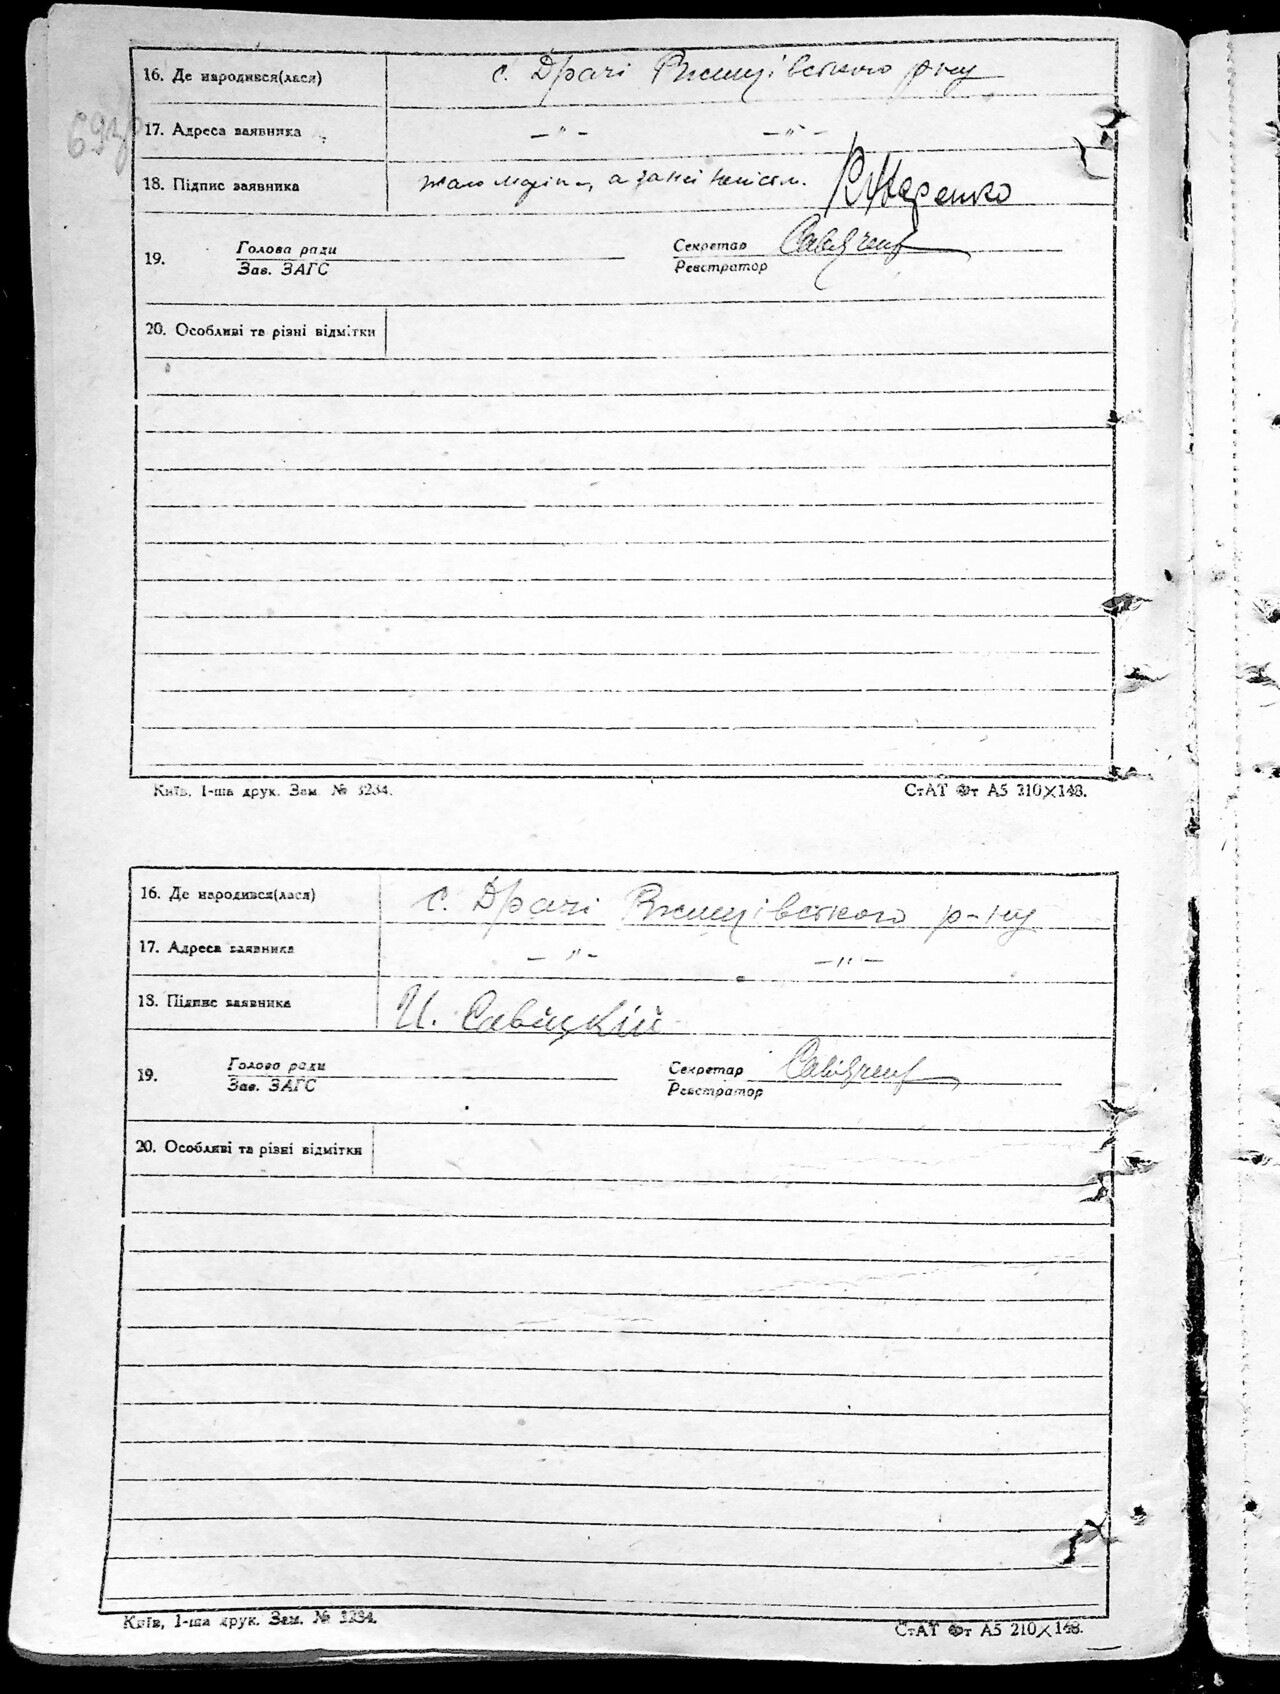 693р
16. Де народився(лася) с. Драчі Ржищівського р-ну
17. Адреса заявника — " — — " —
18. Підпис заявника а за неї К Маренко
19. Голова ради Секретар
Зав. ЗАГС Реєстратор
20. Особливі та різні відмітки
Київ, 1-ша друк. Зам. № 3234. СтАТ Фт А5 210×148.
16. Де народився(лася) с. Драчі Ржищівського р-ну
17. Адреса заявника — " — — " —
18. Підпис заявника И. Савіцкій
19. Голова ради Секретар
Зав. ЗАГС Реєстратор
20. Особливі та різні відмітки
Київ, 1-ша друк. Зам. № 3234. СтАТ Фт А5 210×148.